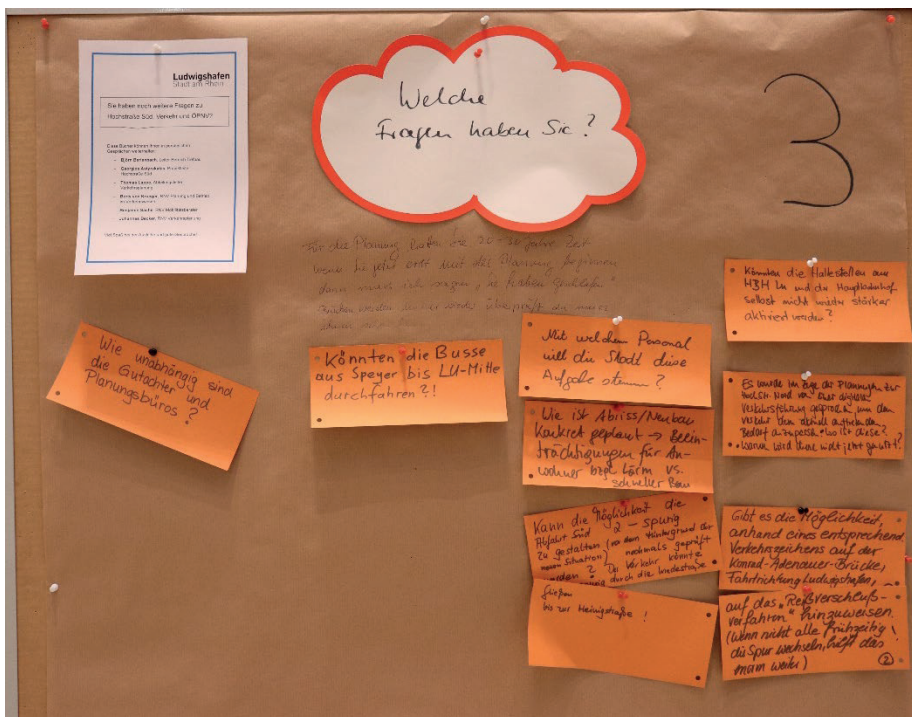 Ludwigshafen
Stadt am Rhein
Sie haben noch weitere Fragen zu
Hochstraße Süd, Verkehr und ÖPNV?
Welche
Fragen haben Sie?
3
Für die Planung hatten Sie 20 - 30 Jahre Zeit
wenn Sie jetzt erst mit der Planung beginnen
dann muss ich sagen,
Brücken werden immer wieder überprüft
Wie unabhängig sind
die Gutachter und
Planungsbüros?
Könnten die Busse
aus Speyer bis LU-Mitte
durchfahren?!
Mit welchem Personal
will die Stadt diese
Aufgabe stemmen?
Wie ist Abriss/Neubau
konkret geplant → Beein-
trächtigungen für An-
wohner bzgl Lärm vs.
schneller Bau
Kann die Möglichkeit die
Abfahrt Süd 2-spurig
zu gestalten (vor dem Hintergrund der
neuen Situation) nochmals geprüft
werden? Der Verkehr könnte
durch die
fließen
bis zur Heinigstraße!
Könnten die Haltestellen am
HBH LU und der Hauptbahnhof
selbst nicht wieder stärker
aktiviert werden?
Es wurde im Zuge der Planungen zur
Hochstr. Nord von einer digitalen
Verkehrsführung gesprochen, um den
Verkehr dem aktuell auftretenden
Bedarf anzupassen. Wo ist diese?
Warum wird diese nicht jetzt genutzt?
Gibt es die Möglichkeit,
anhand eines entsprechend.
Verkehrszeichens auf der
Konrad-Adenauer-Brücke,
Fahrtrichtung Ludwigshafen,
auf das „Reißverschluß-
verfahren" hinzuweisen.
(Wenn nicht alle frühzeitig
die Spur wechseln, hilft das
enorm weiter)
2